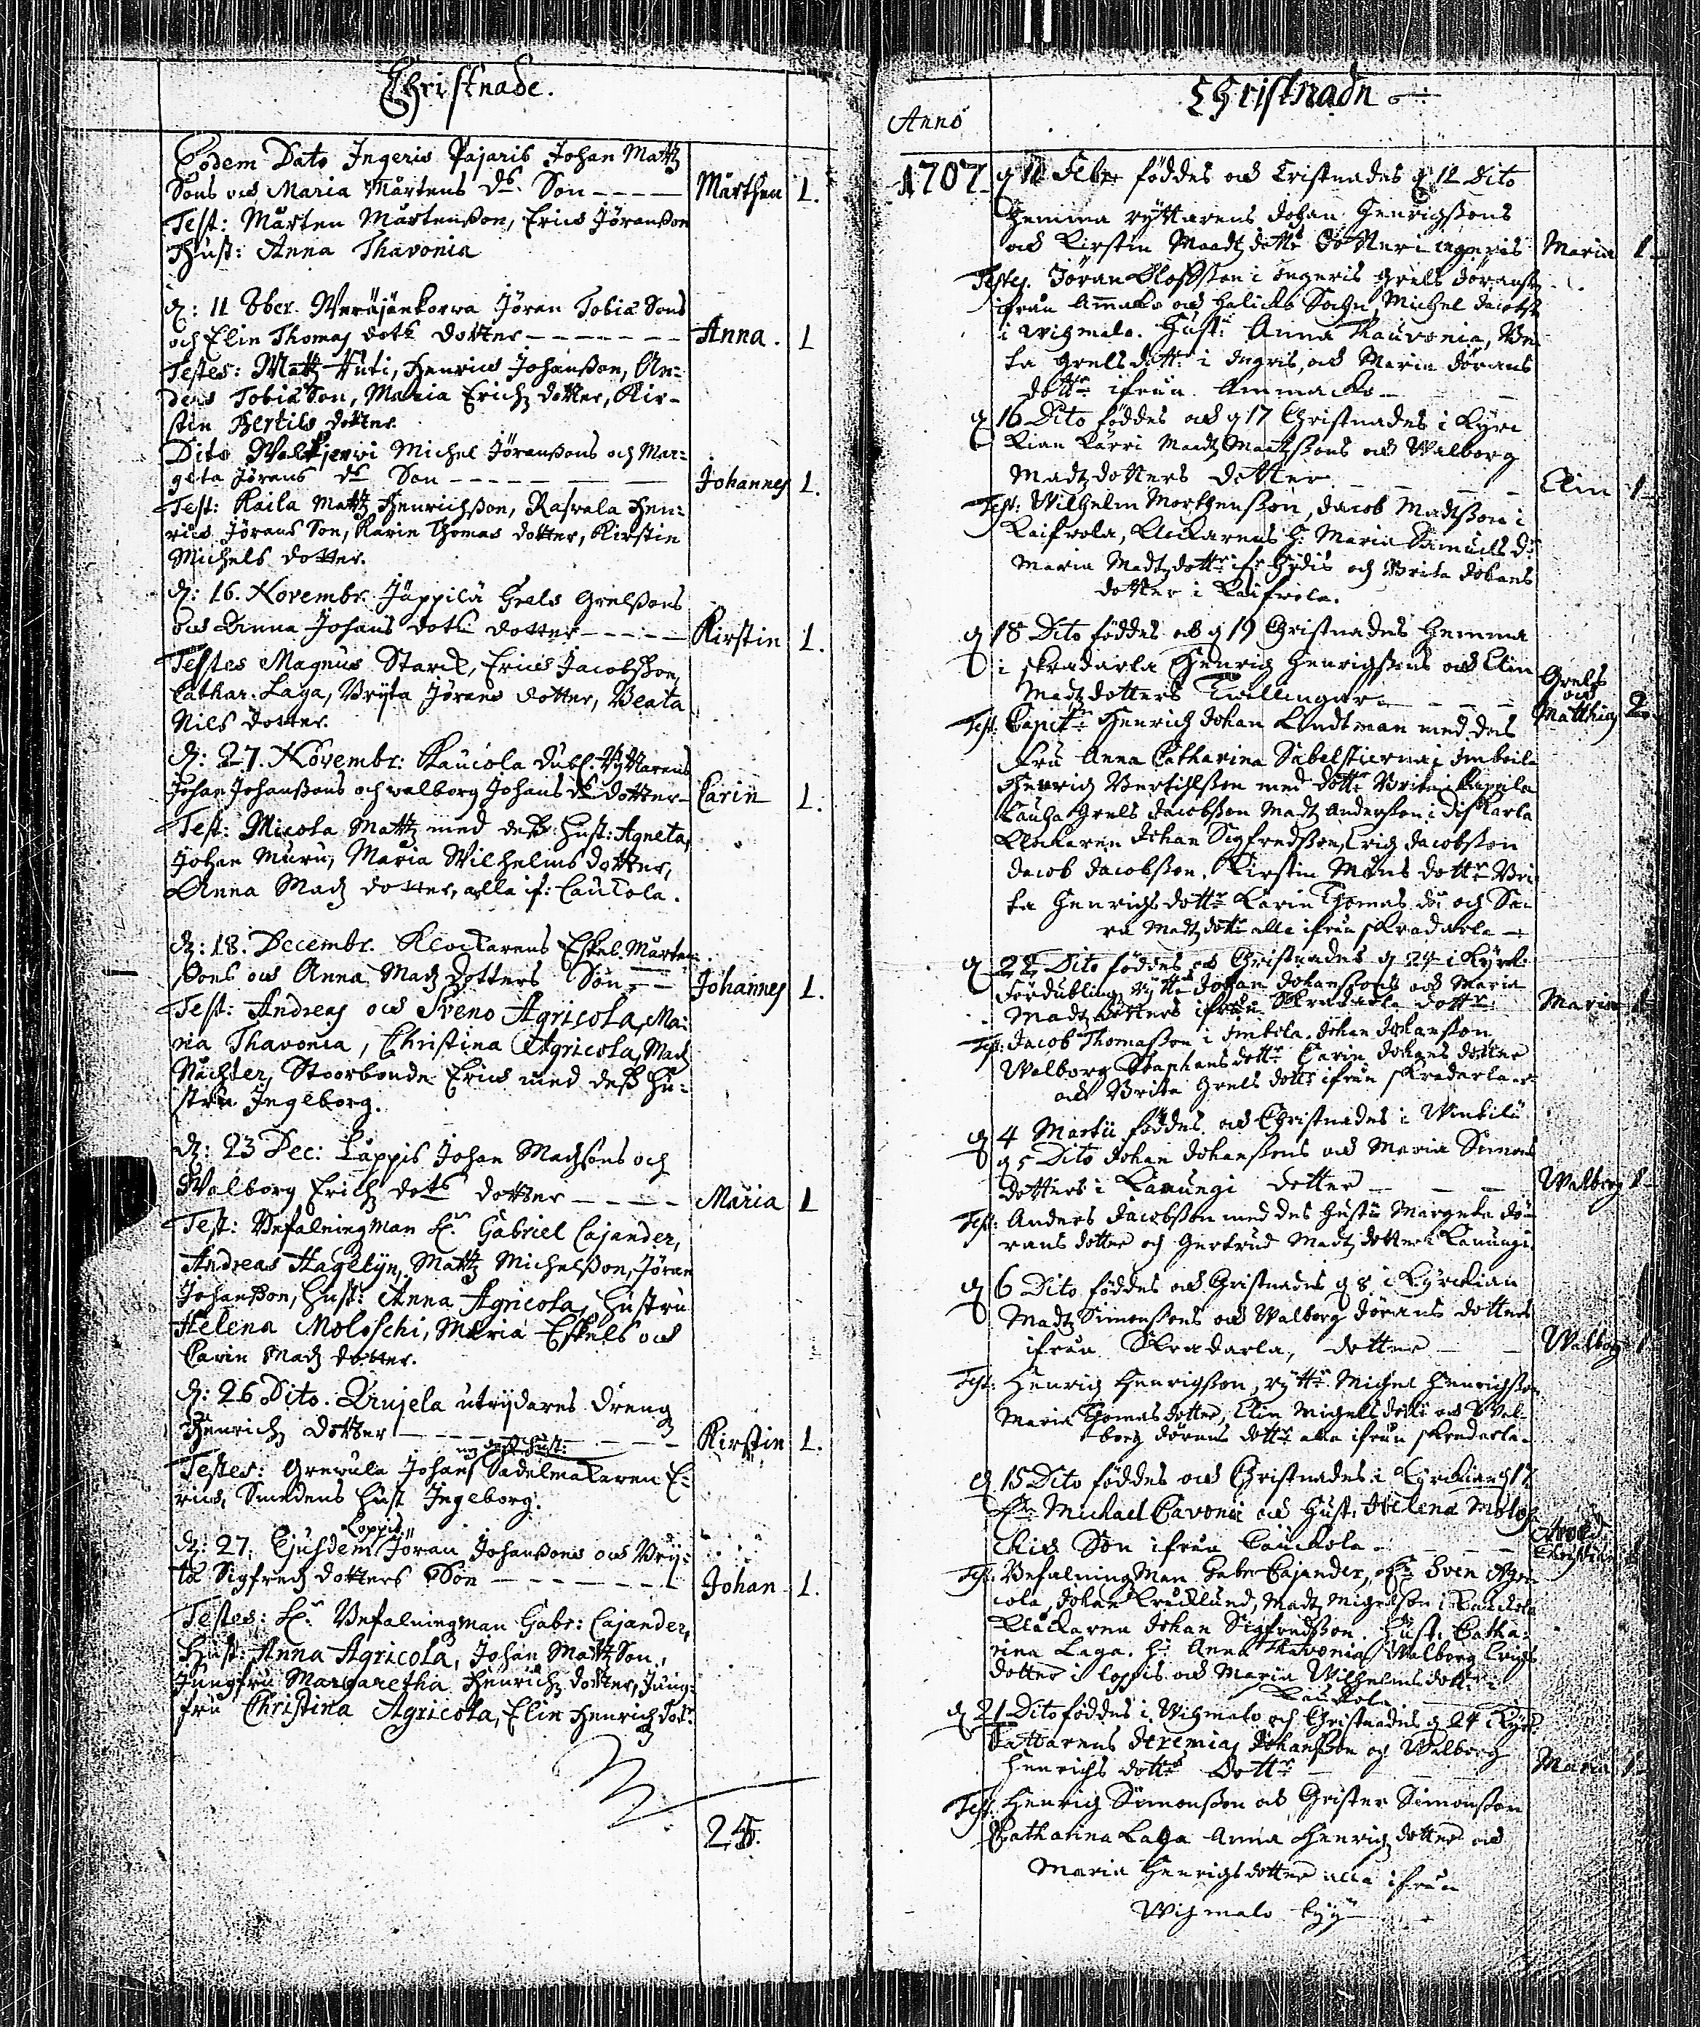 Christnade.
Eodem Dato Ingeris Pajaris Johan Mattz
Sons och Maria Mårtens ds. Son - - - - Mårthen 1.
Test: Mårten Mårtenßon, Erics Jöranßon
Hust: Anna Thavonia
d: 11 8ber. Weräjänkorwa Jöran Tobiæ Sons
och Elin Thomas dotrs dotter - - - - - - - Anna. 1
Testes: Mattz Huti, Henrics Johanßon, An-
ders Tobiæ Son, Maria Erichz dotter, Kir-
stin Bertils dotter.
Dito Michel Jöranßons och Mar-
geta Jörans ds Son - - - - - Johannes 1.
Test: Kaila Mattz Henrichßon, Rasvala Hen-
rics Jörans Son, Karin Thomas dotter, Kirstin
Michels dotter.
d: 16. Novembr. Jäppilä Grels Grelßons
och Anna Johans dotrs dotter - - - - - Kirstin 1.
Testes Magnus Starck, Erics Jacobßon,
Cathar. Laga, Bryta Jörans dotter, Beata
Nils dotter.
d: 27. Novembr: Kaucola dubl. Ryttarens
Johan Johanßons och walborg Johans ds dotter - Carin 1.
Test: Micola Mattz med deß Hust: Agneta,
Johan Muru, Maria Wilhelms dotter,
Anna Madz dotter, alla if: Caucola.
d: 18. Decembr. Klockarens Eskel Mårten-
ßons och Anna Madz dotters Son - - Johannes 1.
Test: Andreas och Sveno Agricola, Ma-
ria Thavonia, Christina Agricola, Mad.
Nächter, Stoorbonde Erics med deß Hu-
stru Ingeborg.
d: 23 Dec: Lappis Johan Madßons och
Walborg Erichz dotrs dotter - - - - Maria 1
Test: Befalningman Hr. Gabriel Cajander,
Andreas Hagelijn, Mattz Michelßon, Jöran
Johanßon, Hust: Anna Agricola, Hustru
Helena Moloschi, Maria Eskels och
Carin Madz dotter.
d: 26 Dito. Drujela utrydares dreng
Henrichz dotter - - - - - - - Kirstin 1.
Testes: Grewula Johans mz deß Hust: Sadelmakaren E-
rics, Smedens Hust Ingeborg.
d: 27. Ejusdem Loppis Jöran Johanßons och Bry-
ta Sigfredz dotters Son - - - - - - - Johan 1.
Testes: Hr. Befalningman Gabr: Cajander,
Hust: Anna Agricola, Johan Mattz Son,
Jungfru Margaretha Henrichz dotter, Jung-
fru Christina Agricola, Elin Henrich dotr.
24.
Christnadn
Anno
1707 d 11 Febr föddes och Cristnades d 12 Dito
Hemma ryttarens Johan Henrigßons
och Kirstin Madtz dotrs dotter i ingeris Maria 1
Testes. Jöran Oloffßon i Ingeris Grels Jöranß
ifrån Ammako och Michel Jacobß
i wihmalo. Hustr Anna Thauvonia, Bri
ta Grels dottr i Ingris, och Maria Jörans
dottr ifrån Ammako -
d 16 Dito föddes och d 17 Christnades i Kyrc
kian Kärri Madtz Madtßons och Walborg
Madtz dotters dotter - - - - Elin 1
Test: Wilhelm Morthenßon, Jacob Madtßon i
Kaifvola, Klockarens H: Maria Samuels dr
Maria Madtz dottr ifr Hydis och Brita Johans
dotter i Kaifvola.
d 18 Dito föddes och d 19 Christnades Hemma
i skradarla Henrig Henrigßons och Elin
Madtz dotters Twillingar - - - Grels och Matthias 2
Test: Capitn Henrich Johan Lindtman med des
Fru Anna Catharina Sabelstierna i Imbeila
Henrig Bertilßon med dottr Brita i Kapila
Grels Jacobßon Madtz Anderßon i
Klockaren Johan Sigfredßon, Erich Jacobßon
Jacob Jacobßon, Kirstin Måns dottr Bri
ta Henrichs dottr Karin Thomas dr och Sa-
ra Madtz dottr alla ifrån skradarla -
d 22 Dito föddes och Christnades d 24 i Kyrck.
Fördubling rytte Johan Johanßons och Maria
Madtz dotters ifrån Skradarla dottr Maria 1
Test: Jacob Thomaßon i Imbila. Johan Johanßon
Walborg Staphans dottr Carin Johans dotter
och Brita Grels dottr ifrån skradarla
d 4 Martii föddes och Christnades i Winkilä
d 5 Dito Johan Johanßons och Maria Simons
dotters i Kauungi dotter - - - Walborg 1
Test: Anders Jacobßon med des Hustru Margreta Jö-
rans dotter och Gertrud Madtz dotter i Kauungi
d 6 Dito föddes och Christnades d 8 i Kyrckian
Madtz Simonßons och Walborg Jörans dotters
ifrån Skradarla, dotter - - Walborg 1
Test: Henrig Henrigßon, rytt Michel Henrichßon
Maria Thomas dotter, Elin Michels dottr och Wal-
borg Jörans dottr alla ifrån skradarla -
d 15 Dito föddes och Christnades i Kyrckian d 17
Hr. Michael Cavonii och Hust. Helena Molos-
chis Son ifrån Cauckola - - - Christian 1
Test: Befalningman Gabr Cajander, Hr Sven Agri-
cola, Johan Krucklund, Madtz Michelßon i Kauckola
Klåckaren Johan Sigfredßon. Hustr. Catha-
rina Laga. H: Anna Thavonia, Walborg Erichs
dotter i loppis och Maria Wilhelms dottr i
Kauckola
d 21 Dito föddes i Wihmalo och Christnades d 24 i Kyrk:
Jeremias Johanßon och Walborg
Henrichs dottrs dottr - - - Maria 1
Test: Henrig Simonßon och Christer Simonßon
Chatharina Laga Anna Henrig dotter och
Maria Henrigs dotter alla ifrån
Wihmalo byy